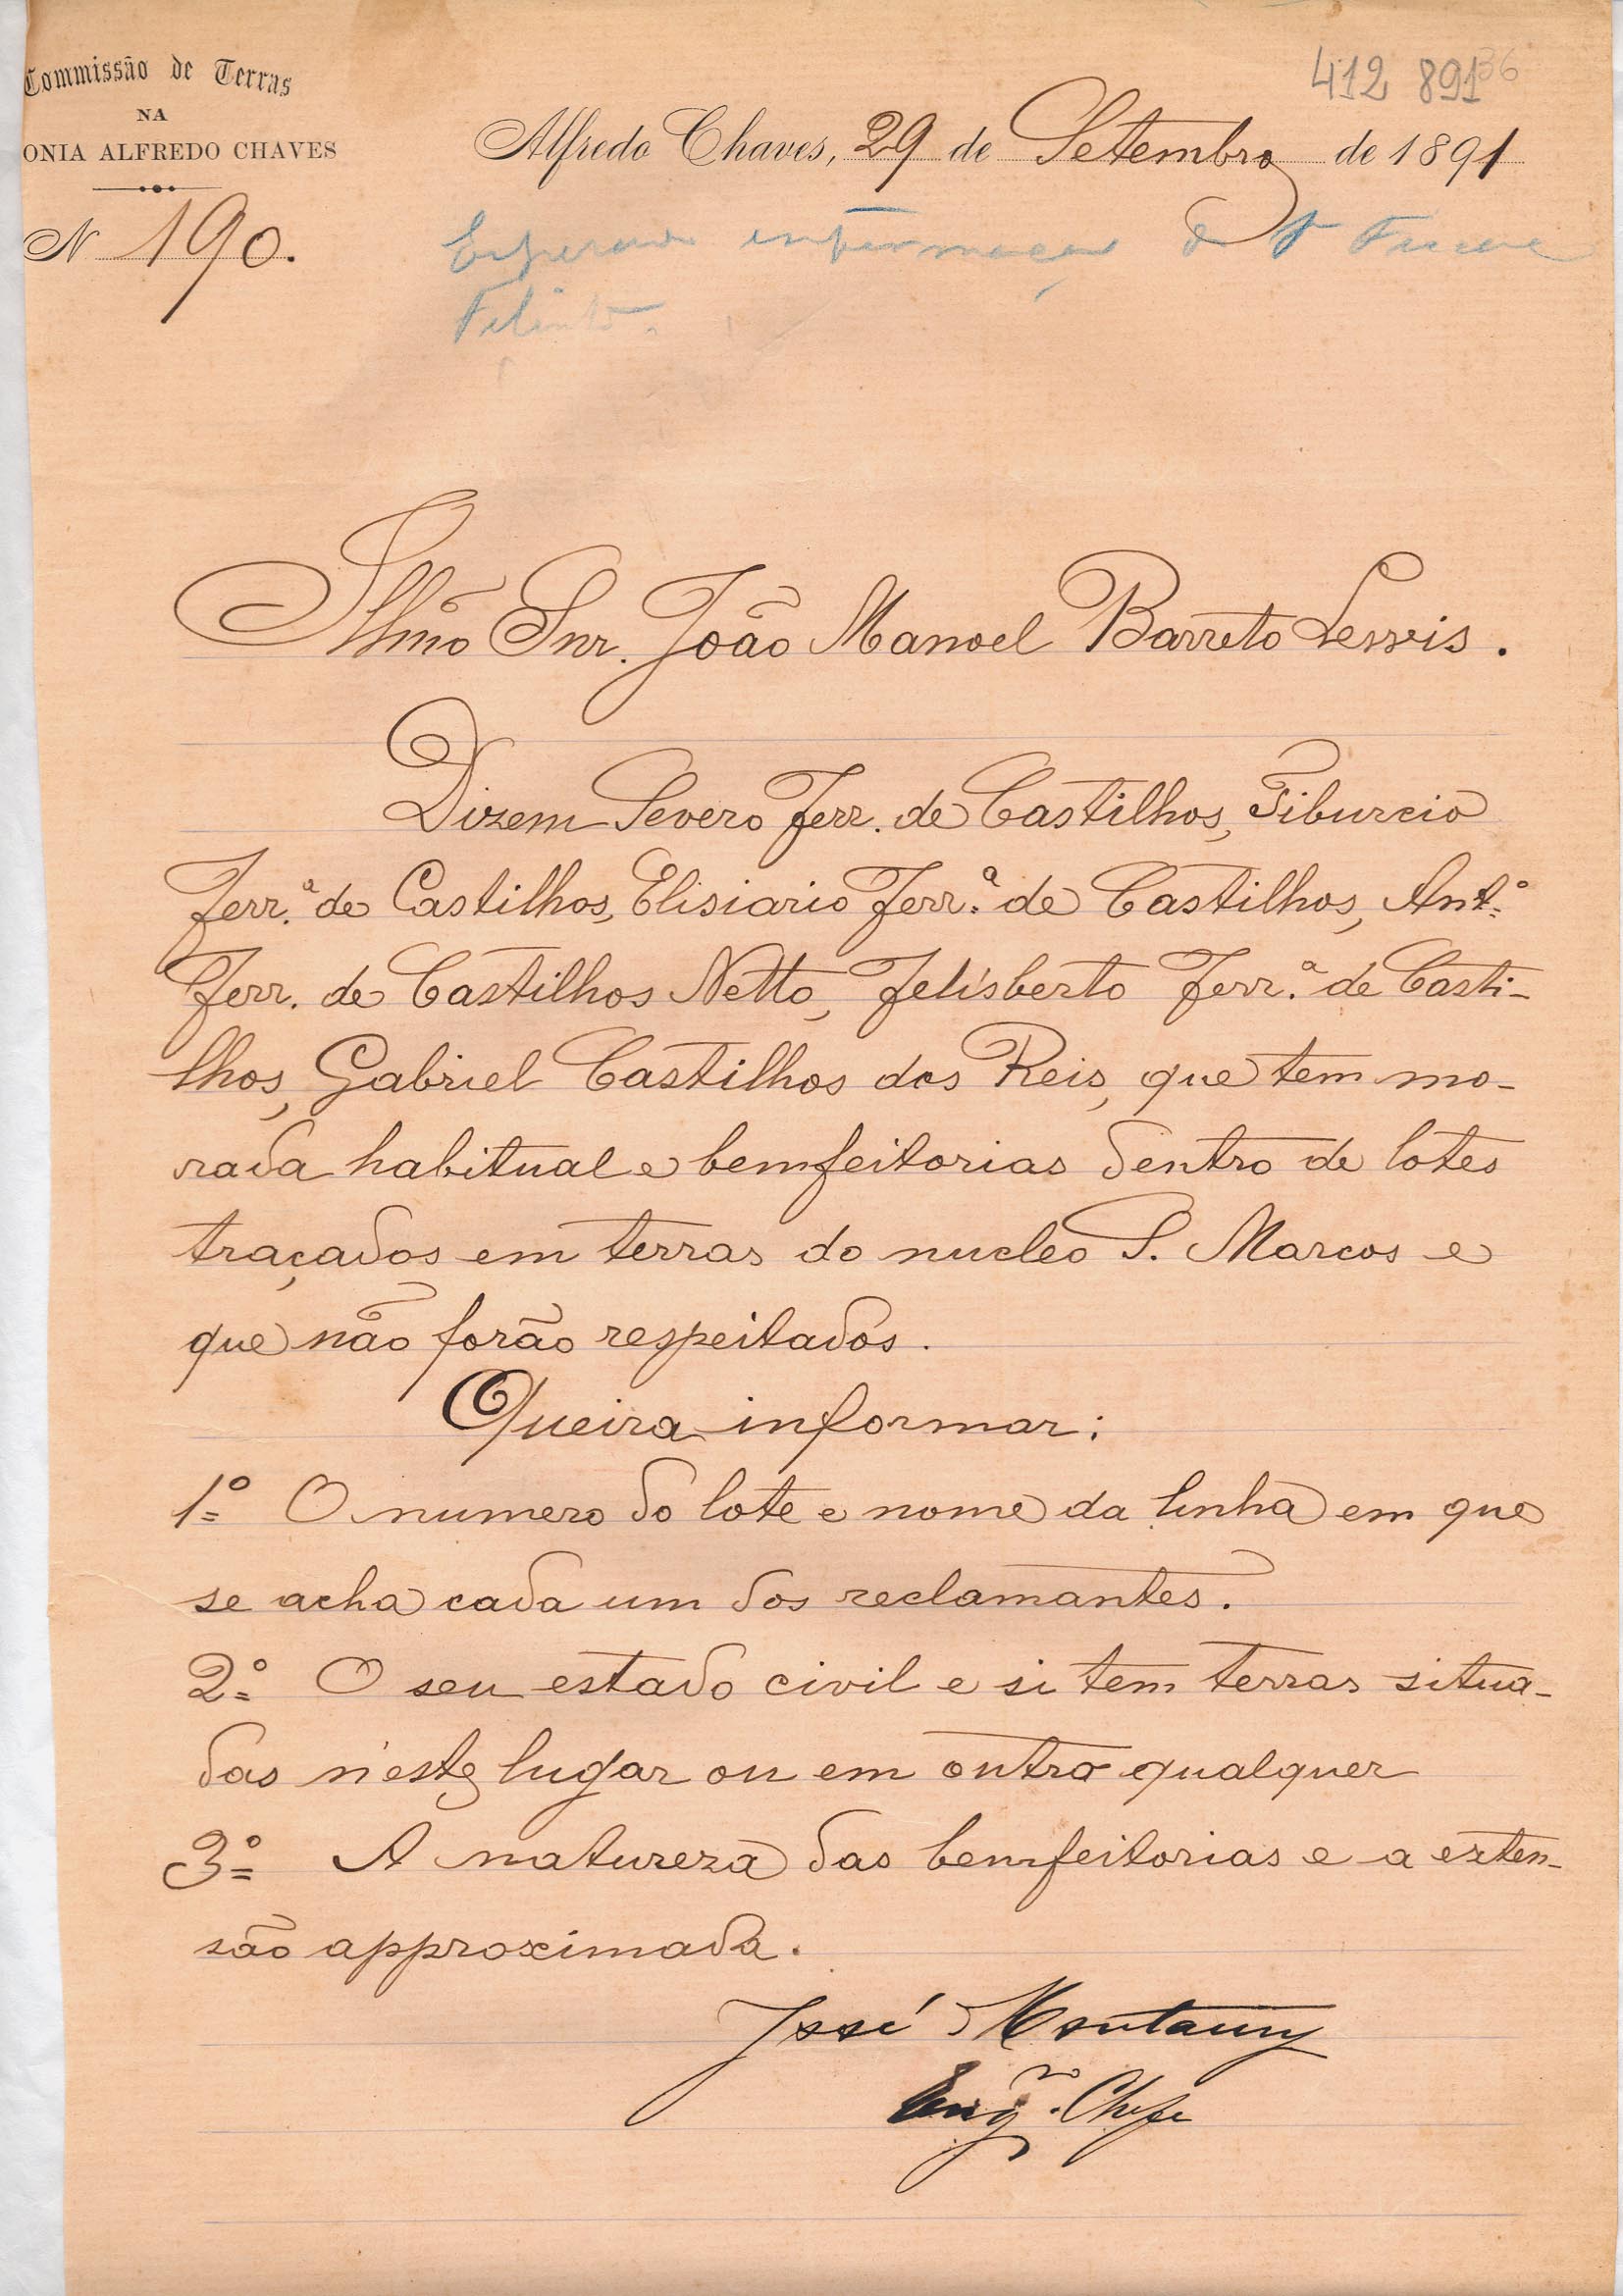 Commissão de Terras
NA
ONIA ALFREDO CHAVES
412 891 36
Alfredo Chaves, 29 de Setembro de 1891
N 190.
informação
Illmo Snr. João Manoel Barreto Lewis.
Dizem Severo Ferr. de Castilhos, Tiburcio
Ferr.ª de Castilhos, Elisiario Ferr.ª de Castilhos, Ant.º
Ferr. de Castilhos Netto, Felisberto Ferr.ª de Casti-
lhos, Gabriel Castilhos dos Reis, que tem mo-
rada habitual e bemfeitorias dentro de lotes
traçados em terras do nucleo S. Marcos e
que não forão respeitados.
Queira informar:
1º O numero do lote e nome da linha em que
se acha cada um dos reclamantes.
2º O seu estado civil e si tem terras situa-
das n'este lugar ou em outro qualquer
3º A natureza das bemfeitorias e a exten-
são approximada.
José Montaury
Engº. Chefe